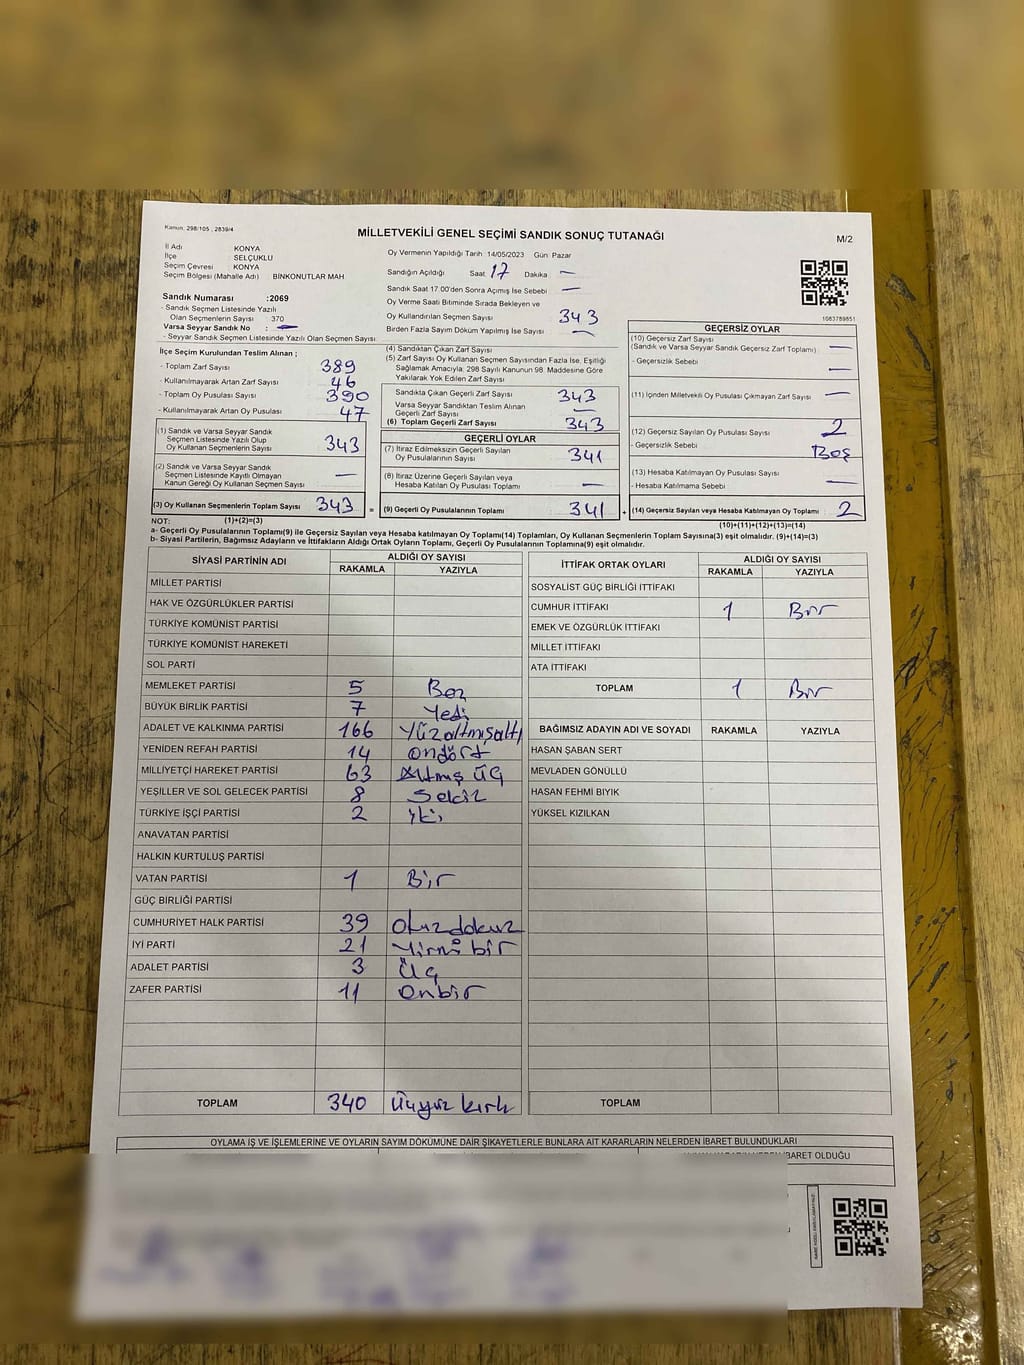 Kanun: 298/105 , 2839/4
MİLLETVEKİLİ GENEL SEÇİMİ SANDIK SONUÇ TUTANAĞI
M/2
İl Adı KONYA
İlçe SELÇUKLU
Seçim Çevresi KONYA
Seçim Bölgesi (Mahalle Adı) : BİNKONUTLAR MAH
Sandık Numarası :2069
- Sandık Seçmen Listesinde Yazılı
Olan Seçmenlerin Sayısı 370
Varsa Seyyar Sandık No : —
- Seyyar Sandık Seçmen Listesinde Yazılı Olan Seçmen Sayısı
Oy Vermenin Yapıldığı Tarih 14/05/2023 Gün Pazar
Sandığın Açıldığı Saat 17 Dakika —
Sandık Saat 17.00'den Sonra Açımış İse Sebebi —
Oy Verme Saati Bitiminde Sırada Bekleyen ve
Oy Kullandırılan Seçmen Sayısı 343
Birden Fazla Sayım Döküm Yapılmış İse Sayısı —
1083789851
İlçe Seçim Kurulundan Teslim Alınan ;
- Toplam Zarf Sayısı 389
- Kullanılmayarak Artan Zarf Sayısı 46
- Toplam Oy Pusulası Sayısı 390
- Kullanılmayarak Artan Oy Pusulası 47
(1) Sandık ve Varsa Seyyar Sandık
Seçmen Listesinde Yazılı Olup
Oy Kullanan Seçmenlerin Sayısı 343
(2) Sandık ve Varsa Seyyar Sandık
Seçmen Listesinde Kayıtlı Olmayan
Kanun Gereği Oy Kullanan Seçmen Sayısı —
(3) Oy Kullanan Seçmenlerin Toplam Sayısı 343 =
(4) Sandıktan Çıkan Zarf Sayısı
(5) Zarf Sayısı Oy Kullanan Seçmen Sayısından Fazla İse, Eşitliği
Sağlamak Amacıyla; 298 Sayılı Kanunun 98. Maddesine Göre
Yakılarak Yok Edilen Zarf Sayısı
Sandıkta Çıkan Geçerli Zarf Sayısı 343
Varsa Seyyar Sandıktan Teslim Alınan
Geçerli Zarf Sayısı —
(6) Toplam Geçerli Zarf Sayısı 343
GEÇERLİ OYLAR
(7) İtiraz Edilmeksizin Geçerli Sayılan
Oy Pusulalarının Sayısı 341
(8) İtiraz Üzerine Geçerli Sayılan veya
Hesaba Katılan Oy Pusulası Toplamı —
(9) Geçerli Oy Pusulalarının Toplamı 341 +
GEÇERSİZ OYLAR
(10) Geçersiz Zarf Sayısı
(Sandık ve Varsa Seyyar Sandık Geçersiz Zarf Toplamı) —
- Geçersizlik Sebebi —
(11) İçinden Milletvekili Oy Pusulası Çıkmayan Zarf Sayısı —
(12) Geçersiz Sayılan Oy Pusulası Sayısı 2
- Geçersizlik Sebebi Boş
(13) Hesaba Katılmayan Oy Pusulası Sayısı
- Hesaba Katılmama Sebebi —
(14) Geçersiz Sayılan veya Hesaba Katılmayan Oy Toplamı 2
NOT: (1)+(2)=(3) (10)+(11)+(12)+(13)=(14)
a- Geçerli Oy Pusulalarının Toplamı(9) ile Geçersiz Sayılan veya Hesaba katılmayan Oy Toplamı(14) Toplamları, Oy Kullanan Seçmenlerin Toplam Sayısına(3) eşit olmalıdır. (9)+(14)=(3)
b- Siyasi Partilerin, Bağımsız Adayların ve İttifakların Aldığı Ortak Oyların Toplamı, Geçerli Oy Pusulalarının Toplamına(9) eşit olmalıdır.
SİYASİ PARTİNİN ADI ALDIĞI OY SAYISI
RAKAMLA YAZIYLA
MİLLET PARTİSİ
HAK VE ÖZGÜRLÜKLER PARTİSİ
TÜRKİYE KOMÜNİST PARTİSİ
TÜRKİYE KOMÜNİST HAREKETİ
SOL PARTİ
MEMLEKET PARTİSİ 5 Beş
BÜYÜK BİRLİK PARTİSİ 7 Yedi
ADALET VE KALKINMA PARTİSİ 166 Yüzaltmışaltı
YENİDEN REFAH PARTİSİ 14 ondört
MİLLİYETÇİ HAREKET PARTİSİ 63 Altmış üç
YEŞİLLER VE SOL GELECEK PARTİSİ 8 Sekiz
TÜRKİYE İŞÇİ PARTİSİ 2 iki
ANAVATAN PARTİSİ
HALKIN KURTULUŞ PARTİSİ
VATAN PARTİSİ 1 Bir
GÜÇ BİRLİĞİ PARTİSİ
CUMHURİYET HALK PARTİSİ 39 Otuzdokuz
İYİ PARTİ 21 Yirmi bir
ADALET PARTİSİ 3 Üç
ZAFER PARTİSİ 11 Onbir
TOPLAM 340 Üçyüz kırk
İTTİFAK ORTAK OYLARI ALDIĞI OY SAYISI
RAKAMLA YAZIYLA
SOSYALİST GÜÇ BİRLİĞİ İTTİFAKI
CUMHUR İTTİFAKI 1 Bir
EMEK VE ÖZGÜRLÜK İTTİFAKI
MİLLET İTTİFAKI
ATA İTTİFAKI
TOPLAM 1 Bir
BAĞIMSIZ ADAYIN ADI VE SOYADI RAKAMLA YAZIYLA
HASAN ŞABAN SERT
MEVLADEN GÖNÜLLÜ
HASAN FEHMI BIYIK
YÜKSEL KIZILKAN
TOPLAM
OYLAMA İŞ VE İŞLEMLERİNE VE OYLARIN SAYIM DÖKÜMÜNE DAİR ŞİKAYETLERLE BUNLARA AİT KARARLARIN NELERDEN İBARET BULUNDUKLARI
İBARET OLDUĞU